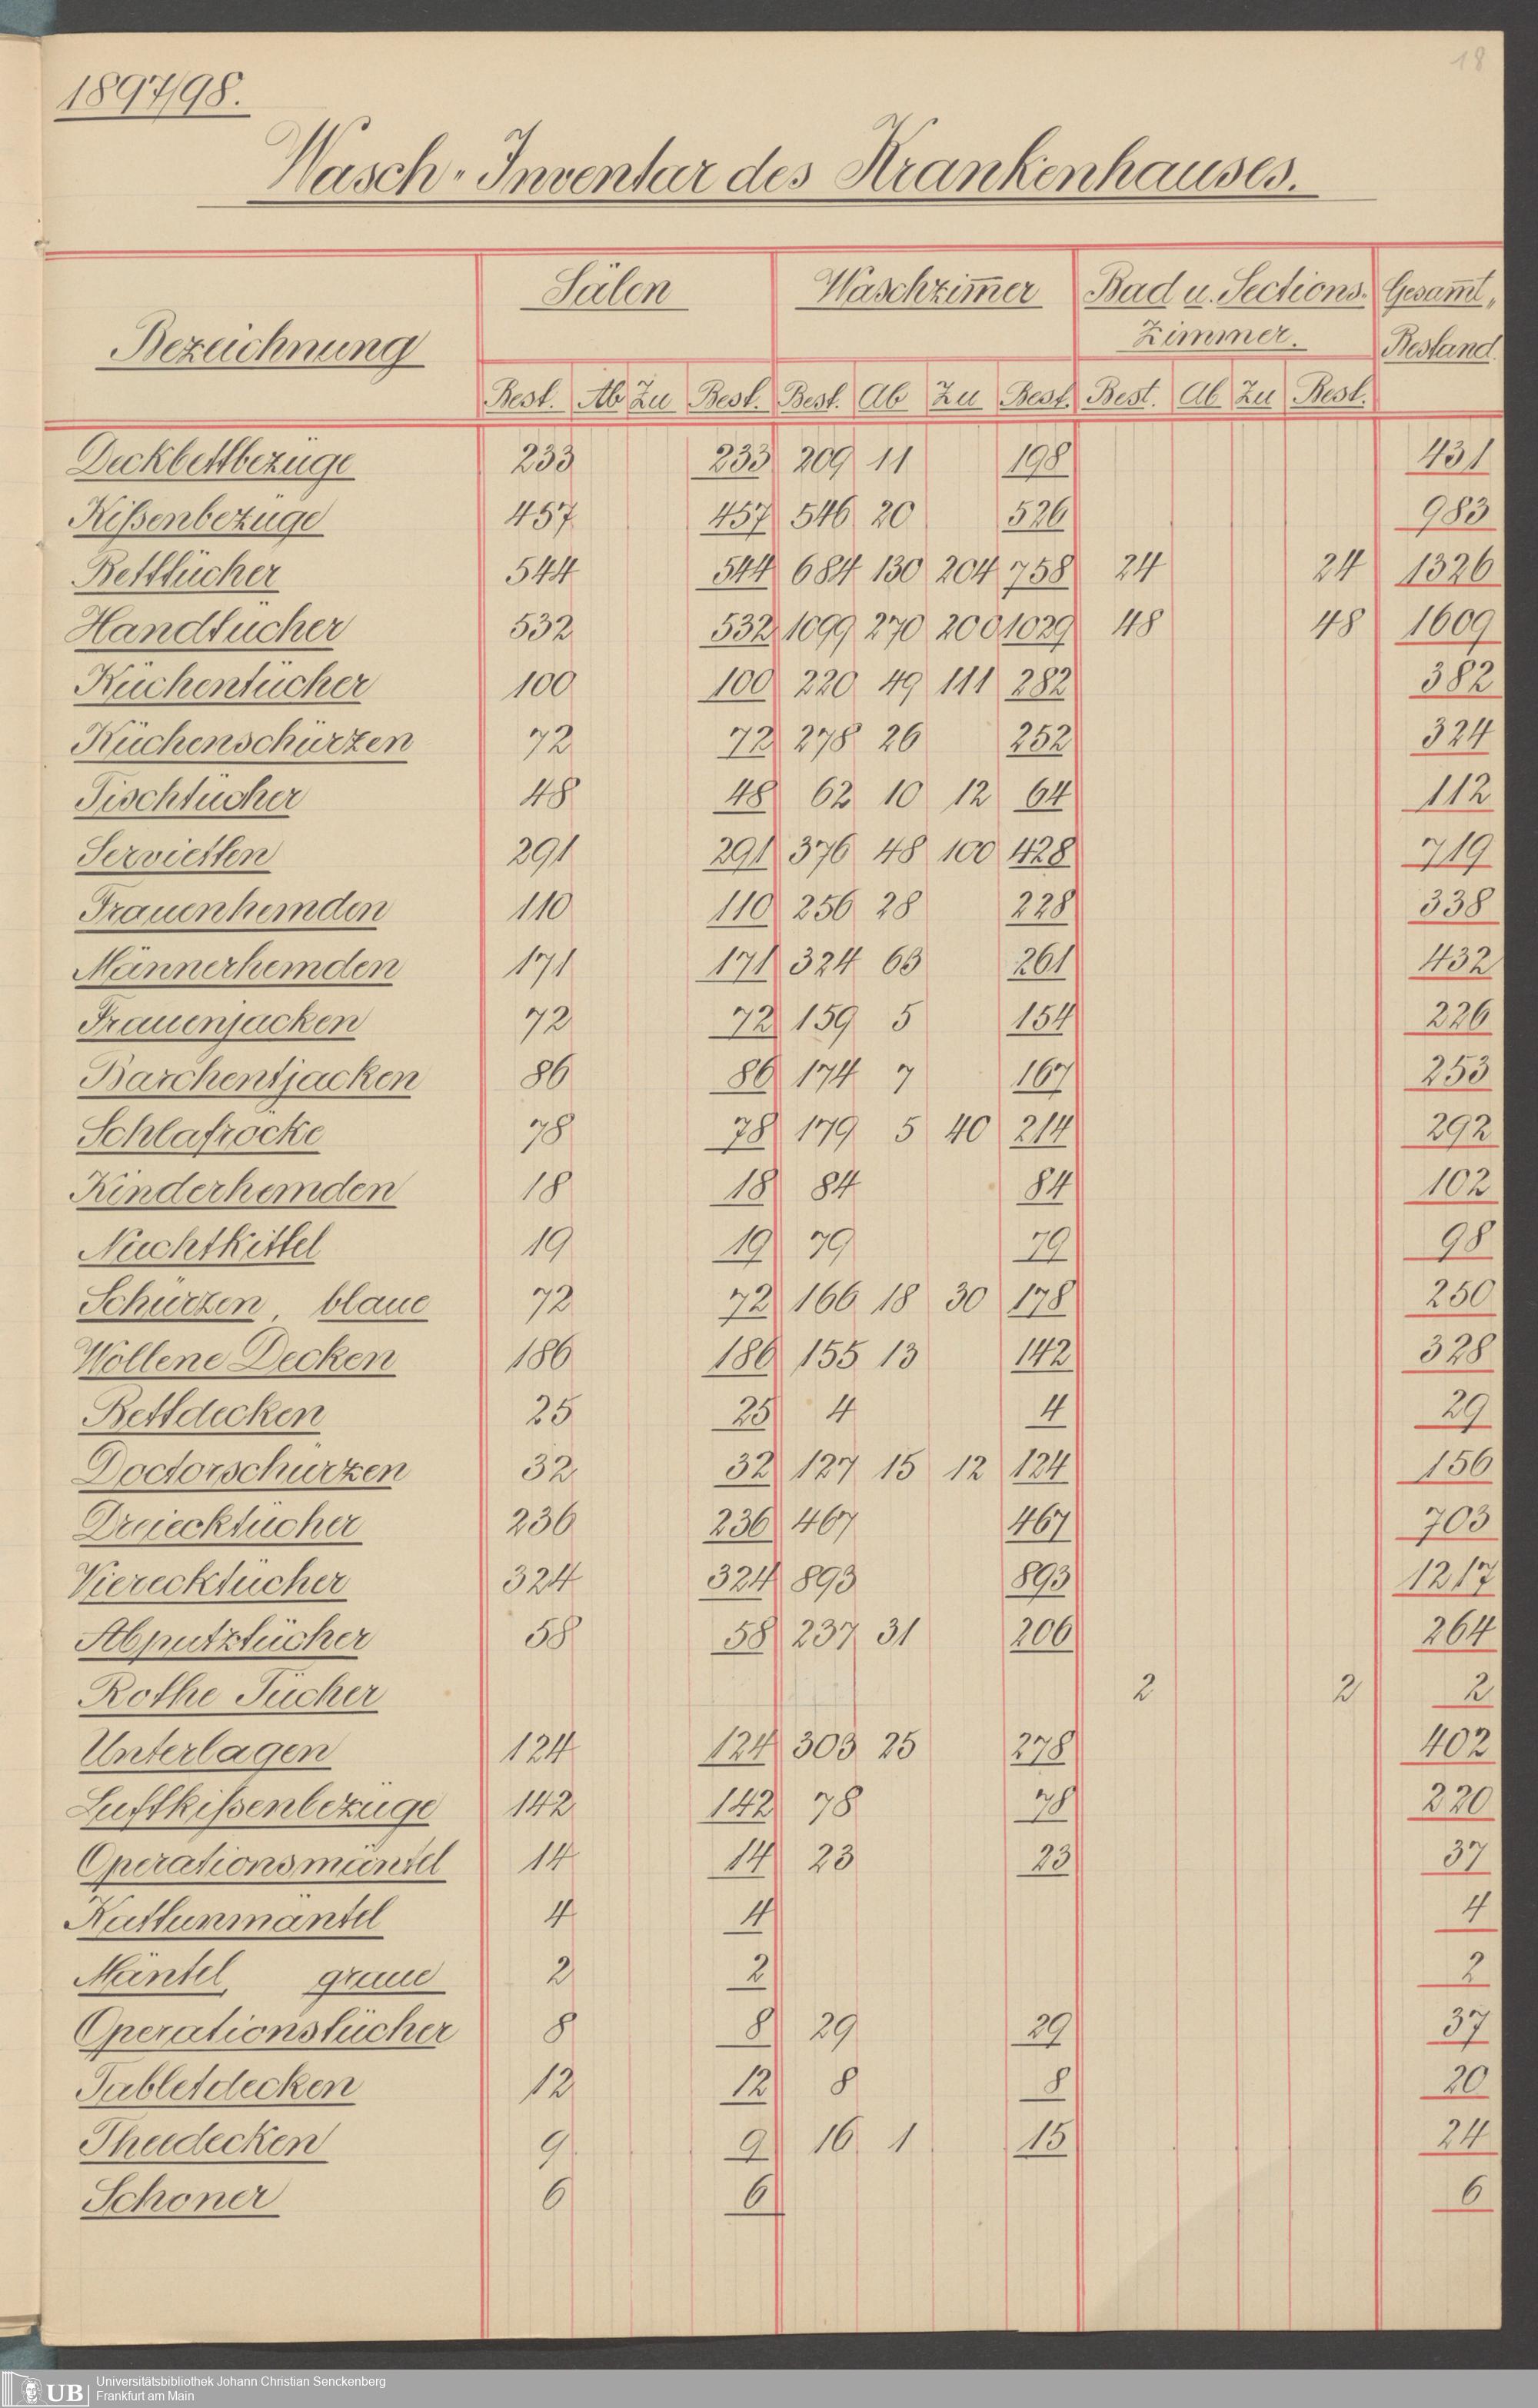 18
1897/98.
Wasch-Inventar des Krankenhauses.
Bezeichnung Sälen Waschzimmer Bad u. Sections- Gesammt-
Zimmer. Bestand.
Best. Ab Zu Best. Best. Ab Zu Best. Best. Ab Zu Best.
Deckbettbezüge 233 233 209 11 198 431
Kißenbezüge 457 457 546 20 526 983
Betttücher 544 544 684 130 204 758 24 24 1326
Handtücher 532 532 1099 270 200 1029 48 48 1609
Küchentücher 100 100 220 49 111 282 382
Küchenschürzen 72 72 278 26 252 324
Tischtücher 48 48 62 10 12 64 112
Servietten 291 291 376 48 100 428 719
Frauenhemden 110 110 256 28 228 338
Männerhemden 171 171 324 63 261 432
Frauenjacken 72 72 159 5 154 226
Barchentjacken 86 86 174 7 167 253
Schlafröcke 78 78 179 5 40 214 292
Kinderhemden 18 18 84 84 102
Nachtkittel 19 19 79 79 98
Schürzen, blaue 72 72 166 18 30 178 250
Wollene Decken 186 186 155 13 142 328
Bettdecken 25 25 4 4 29
Doctorschürzen 32 32 127 15 12 124 156
Dreiecktücher 236 236 467 467 703
Vierecktücher 324 324 893 893 1217
Abputztücher 58 58 237 31 206 264
Rothe Tücher 2 2 2
Unterlagen 124 124 303 25 278 402
Luftkißenbezüge 142 142 78 78 220
Operationsmäntel 14 14 23 23 37
Kattunmäntel 4 4 4
Mäntel, graue 2 2 2
Operationstücher 8 8 29 29 37
Tabletdecken 12 12 8 8 20
Theedecken 9 9 16 1 15 24
Schoner 6 6 6
UB Universitätsbibliothek Johann Christian Senckenberg
Frankfurt am Main